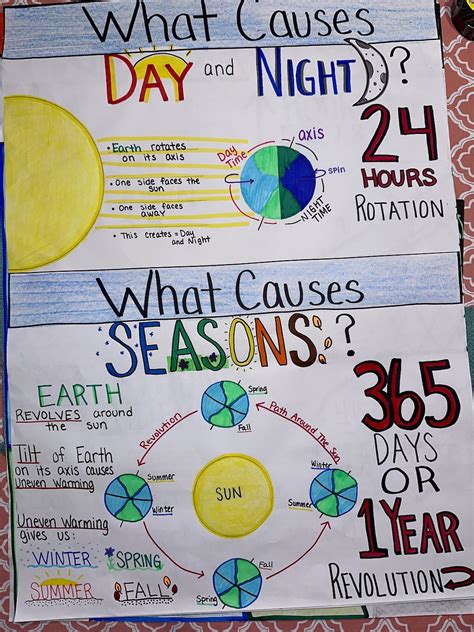 What Causes
DAY and NIGHT?
24
HOURS
ROTATION
• Earth rotates
on its axis
• One side faces the
sun
• One side faces
away
• This creates = Day
and Night
DAY
TIME
axis
SPIN
NIGHT
TIME
What Causes
SEASONS?
365
DAYS
OR
1 YEAR
REVOLUTION
EARTH
REVOLVES around
the sun
Tilt of Earth
on its axis causes
Uneven Warming
Uneven Warming
gives us:
WINTER SPRING
SUMMER FALL
Revolution
Path Around The Sun
Spring
Fall
Summer
Winter
SUN
Winter
Summer
Fall
Spring